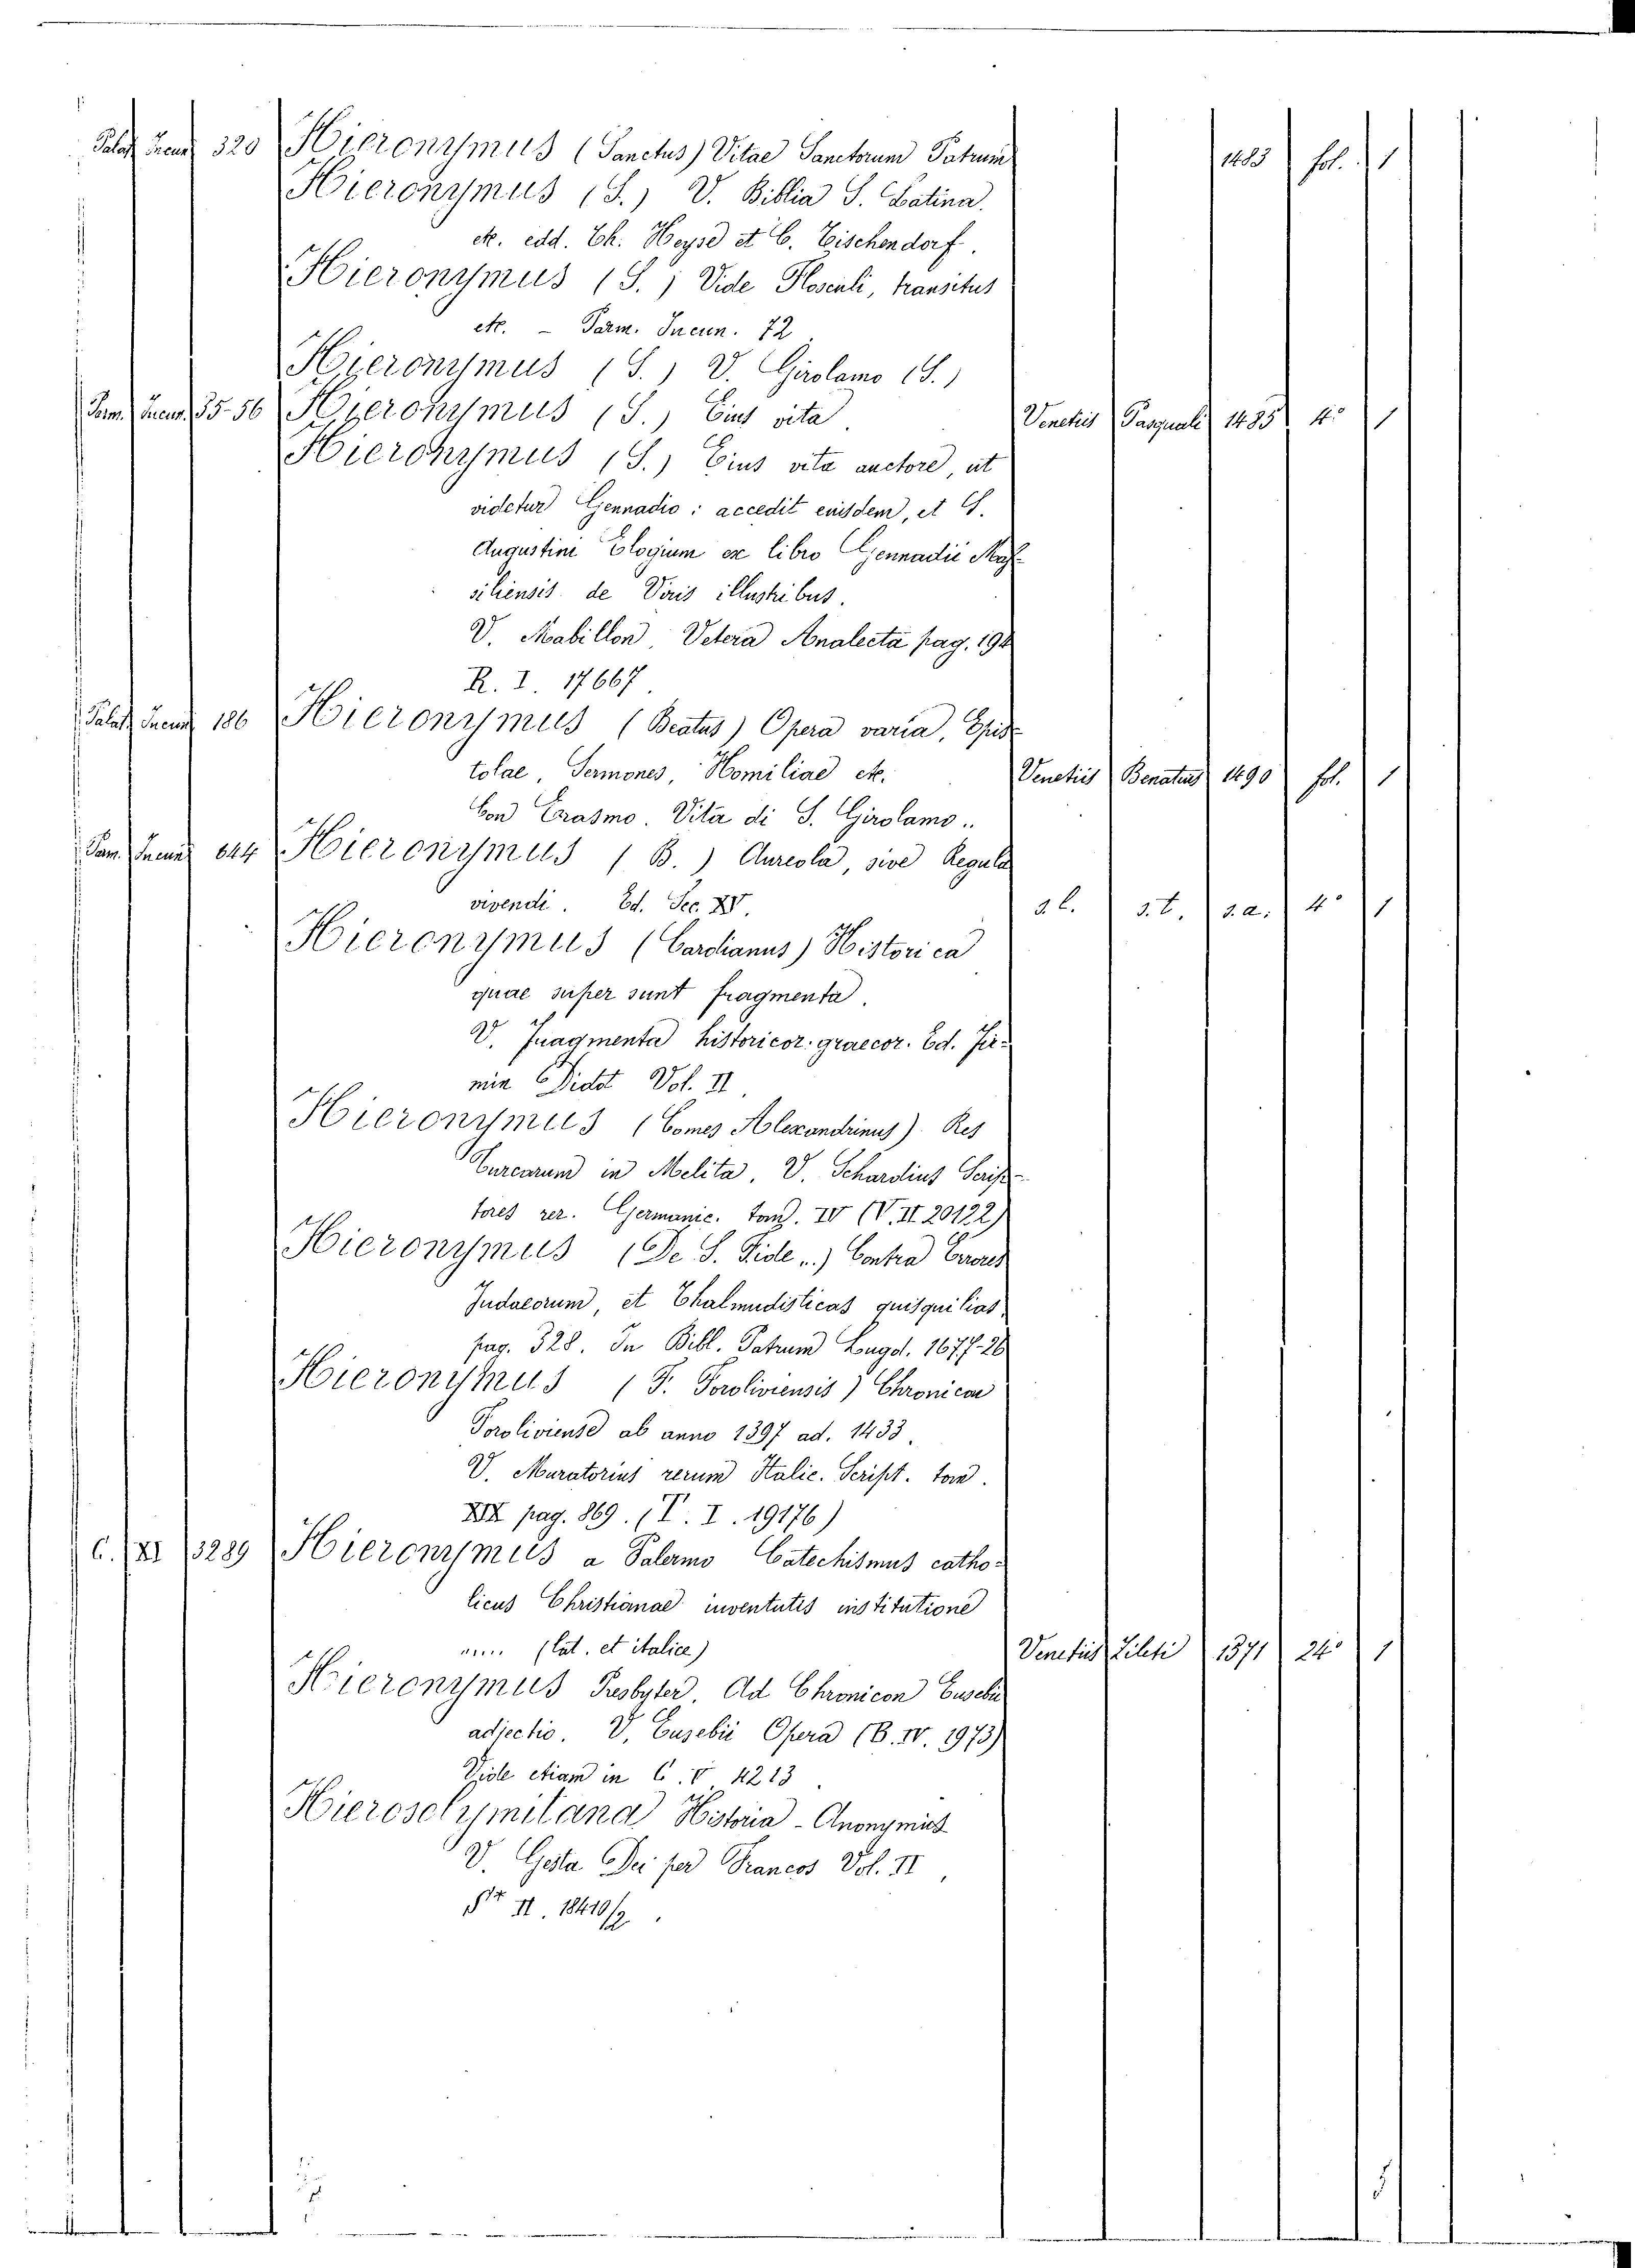 Palat. Incun. 320 Hieronymus (Sanctus) Vitae Sanctorum Patrum 1483 fol. 1
Hieronymus (S.) V. Biblia S. Latina.
etc. edd. Th. Heyse et C. Tischendorf.
Hieronymus (S.) Vide Flosculi, transitus
etc. - Parm. Incun. 72
Hieronymus (S.) V. Girolamo (S.)
Parm. Incun. 55-56 Hieronymus (S.) Eius vita. Venetiis Pasquali 1485 4° 1
Hieronymus (S.) Eius vita auctore, ut
videtur Gennadio: accedit eiusdem, et S.
Augustini Elogium ex libro Gennadii Mas-
siliensis de Viris illustribus.
V. Mabillon, Vetera Analecta pag. 194
R. I. 17667
Palat. Incun. 186 Hieronymus (Beatus) Opera varia, Epis-
tolae, Sermones, Homiliae etc. Venetiis Benatius 1490 fol. 1
Con Erasmo. Vita di S. Girolamo..
Parm. Incun. 644 Hieronymus (B.) Aureola, sive Regula
vivendi. Ed. Sec. XV. s. l. s. t. s. a. 4° 1
Hieronymus (Cardianus) Historica
quae super sunt fragmenta.
V. Fragmenta historicor. graecor. Ed. Fir-
min Didot Vol. II
Hieronymus (Comes Alexandrinus) Res
Turcarum in Melita, V. Schardius Scrip-
tores rer. Germanic. tom. IV (V. II 20122)
Hieronymus (De S. Fide..) Contra Errores
Judaeorum, et Thalmudisticas quisquilias,
pag. 328. In Bibl. Patrum Lugd. 1677-26
Hieronymus (F. Foroliviensis) Chronicon
Foroliviense ab anno 1397 ad. 1433.
V. Muratorius rerum Italic. Script. tom.
XIX pag. 869. (T. I. 19176)
C. XI 3289 Hieronymus a Palermo Catechismus catho-
licus Christianae inventutis institutione
.... (lat. et italice) Venetiis Zileti 1571 24° 1
Hieronymus Presbyter. Ad Chronicon Eusebii
adjectio. V. Eusebii Opera (B. IV. 1973)
Vide etiam in C. V. 4213
Hierosolymitana Historia - Anonymus
V. Gesta Dei per Francos Vol. II,
II. 18410/2.
5